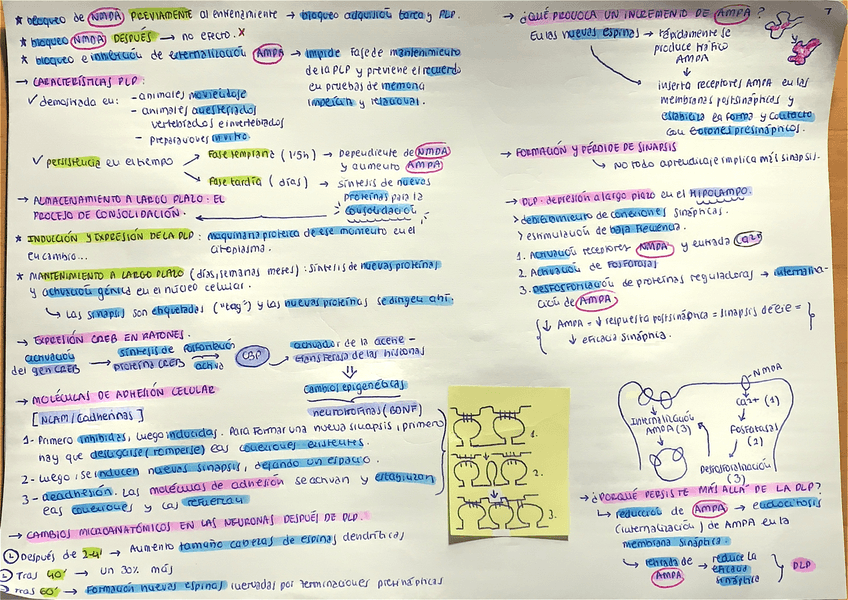 * bloqueo de NMDA PREVIAMENTE al entrenamiento → bloqueo adquisición tarea y PLP.
* bloqueo NMDA DESPUÉS → no efecto. x
* bloqueo e inhibición de externalización AMPA → Impide fase de mantenimiento
de la PLP y previene el recuerdo
en pruebas de memoria
→ CARACTERÍSTICAS PLP:
✓ demostrada en: - animales
- animales anestesiados
vertebrados e invertebrados
- Preparaciones in vitro
✓ persistencia en el tiempo
Fase temprana (1'5h) → Dependiente de NMDA
y aumento AMPA
Fase tardía (días) → síntesis de nuevas
proteínas para la
consolidación
→ ALMACENAMIENTO A LARGO PLAZO: EL
PROCESO DE CONSOLIDACIÓN.
* INDUCCIÓN Y EXPRESIÓN DE LA PLP: maquinaria proteica de ese momento en el
citoplasma.
en cambio...
* MANTENIMIENTO A LARGO PLAZO (días, semanas, meses): síntesis de nuevas proteínas
y activación génica en el núcleo celular.
↳ Las sinapsis son etiquetadas ("tag") y las nuevas proteínas se dirigen ahí.
→ EXPRESIÓN CREB EN RATONES.
activación del gen CREB → síntesis de proteína CREB → fosforilación activa → CBP → activador de la acetil-
transferasa de las histonas
⇓
cambios epigenéticos
neurotrofinas (BDNF)
→ MOLÉCULAS DE ADHESIÓN CELULAR
[NCAM/Cadherinas]
1- Primero inhibidas, luego inducidas. Para formar una nueva sinapsis, primero
hay que despegarse (romperse) las conexiones existentes.
2- Luego, se inducen nuevas sinapsis, dejando un espacio.
3- readhesión. Las moléculas de adhesión se activan y estabilizan
las conexiones y las refuerzan
1.
2.
3.
→ CAMBIOS MICROANATÓMICOS EN LAS NEURONAS DESPUÉS DE PLP.
Después de 2-4' → Aumento tamaño cabezas de espinas dendríticas
Tras 40' → un 30% más
Tras 60' → Formación nuevas espinas inervadas por terminaciones presinápticas
7
→ ¿QUÉ PROVOCA UN INCREMENTO DE AMPA?
En las nuevas espinas → rápidamente se
produce tráfico
AMPA
↓
inserta receptores AMPA en las
membranas postsinápticas y
estabiliza la forma y contacto
con botones presinápticos.
→ FORMACIÓN Y PÉRDIDA DE SINAPSIS
↳ No todo aprendizaje implica más sinapsis.
→ DLP: depresión a largo plazo en el HIPOCAMPO.
> debilitamiento de conexiones sinápticas.
> estimulación de baja frecuencia.
1. Activación receptores NMDA y entrada Ca2+
2. Activación de fosfatasas
3. Desfosforilación de proteínas reguladoras → internaliza-
ción de AMPA
↓ AMPA = ↓ respuesta postsináptica = sinapsis débil =
↓ eficacia sináptica.
NMDA
Ca2+ (1)
Fosfatasas
(2)
Desfosforilación
(3)
Internalización
AMPA (3)
→ ¿PORQUÉ PERSISTE MÁS ALLÁ DE LA DLP?
↳ reducción de AMPA → endocitosis
(internalización) de AMPA en la
membrana sináptica.
↳ retirada de AMPA → reduce la
eficacia
sináptica } DLP